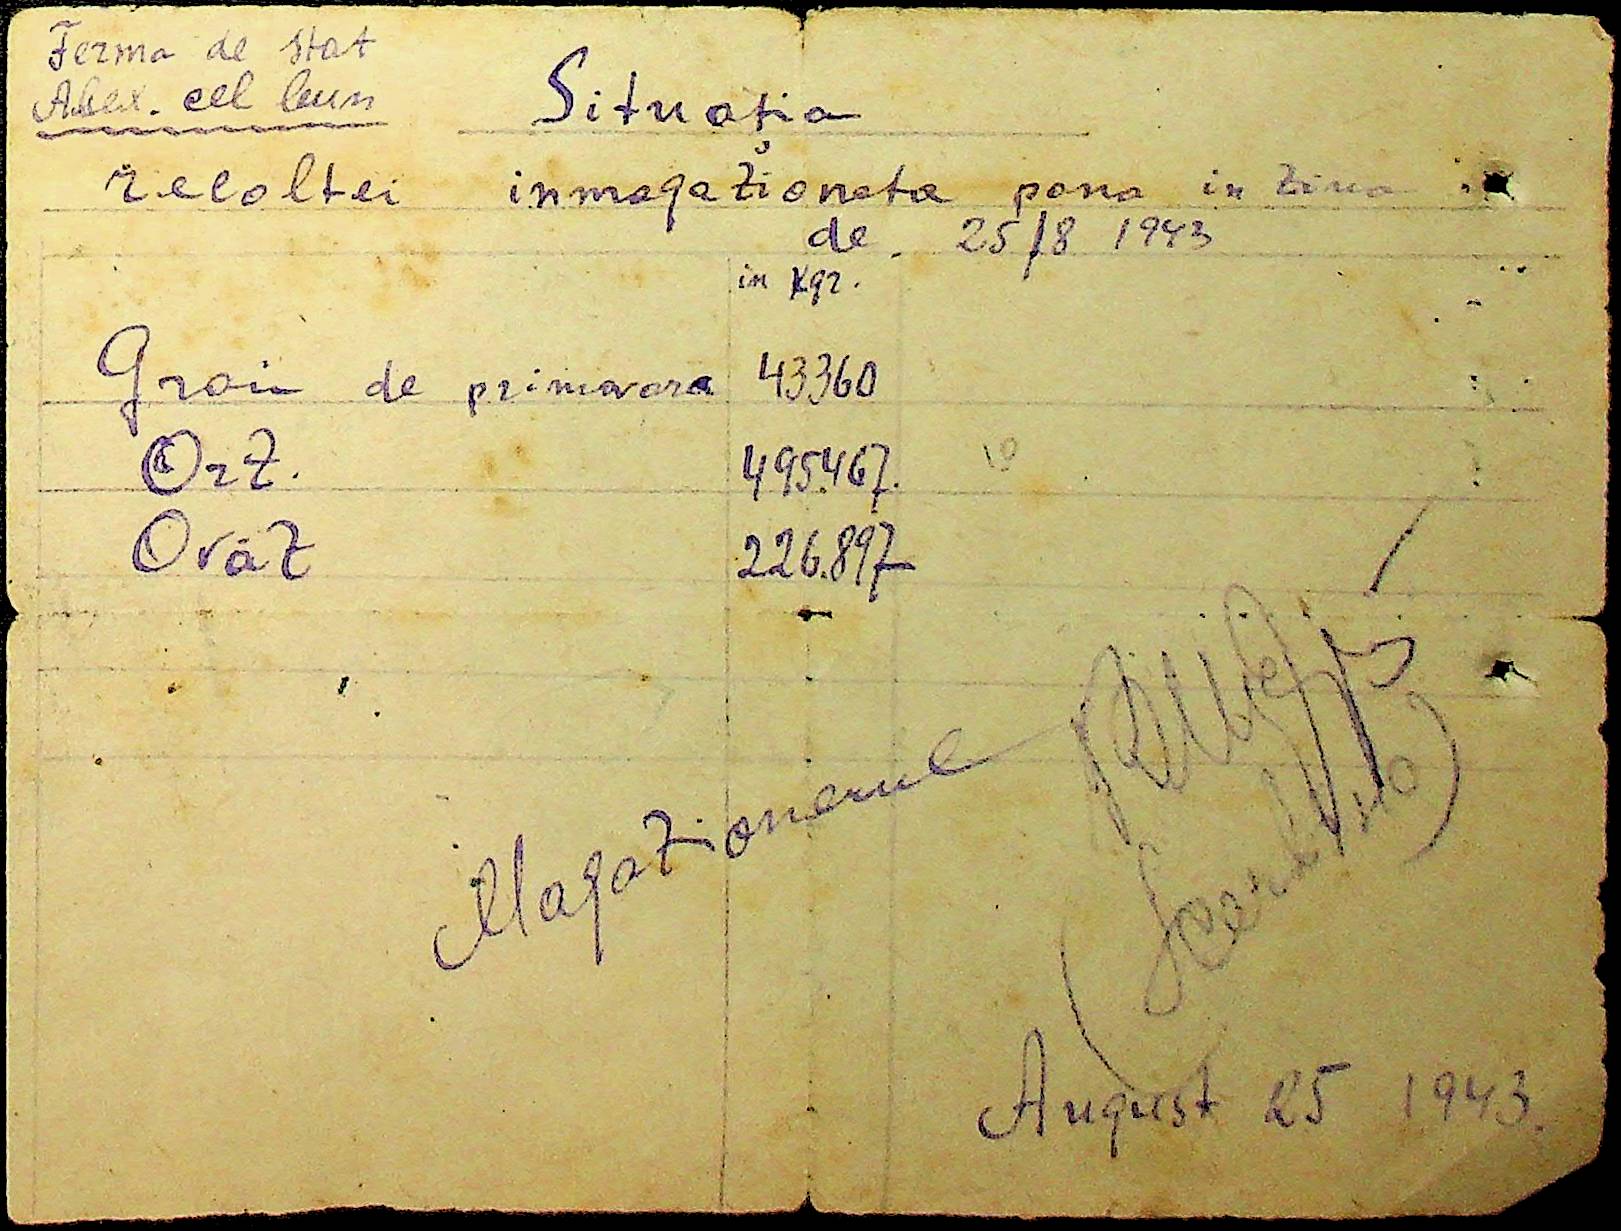 Ferma de stat
Alex. cel bun
Situația
recoltei inmagazionata pana in ziua
de 25/8 1943
in Kgr.
Grâu de primavara 43360
Orz. 495.467.
Ovăz 226.897
Magazionerul
August 25 1943.